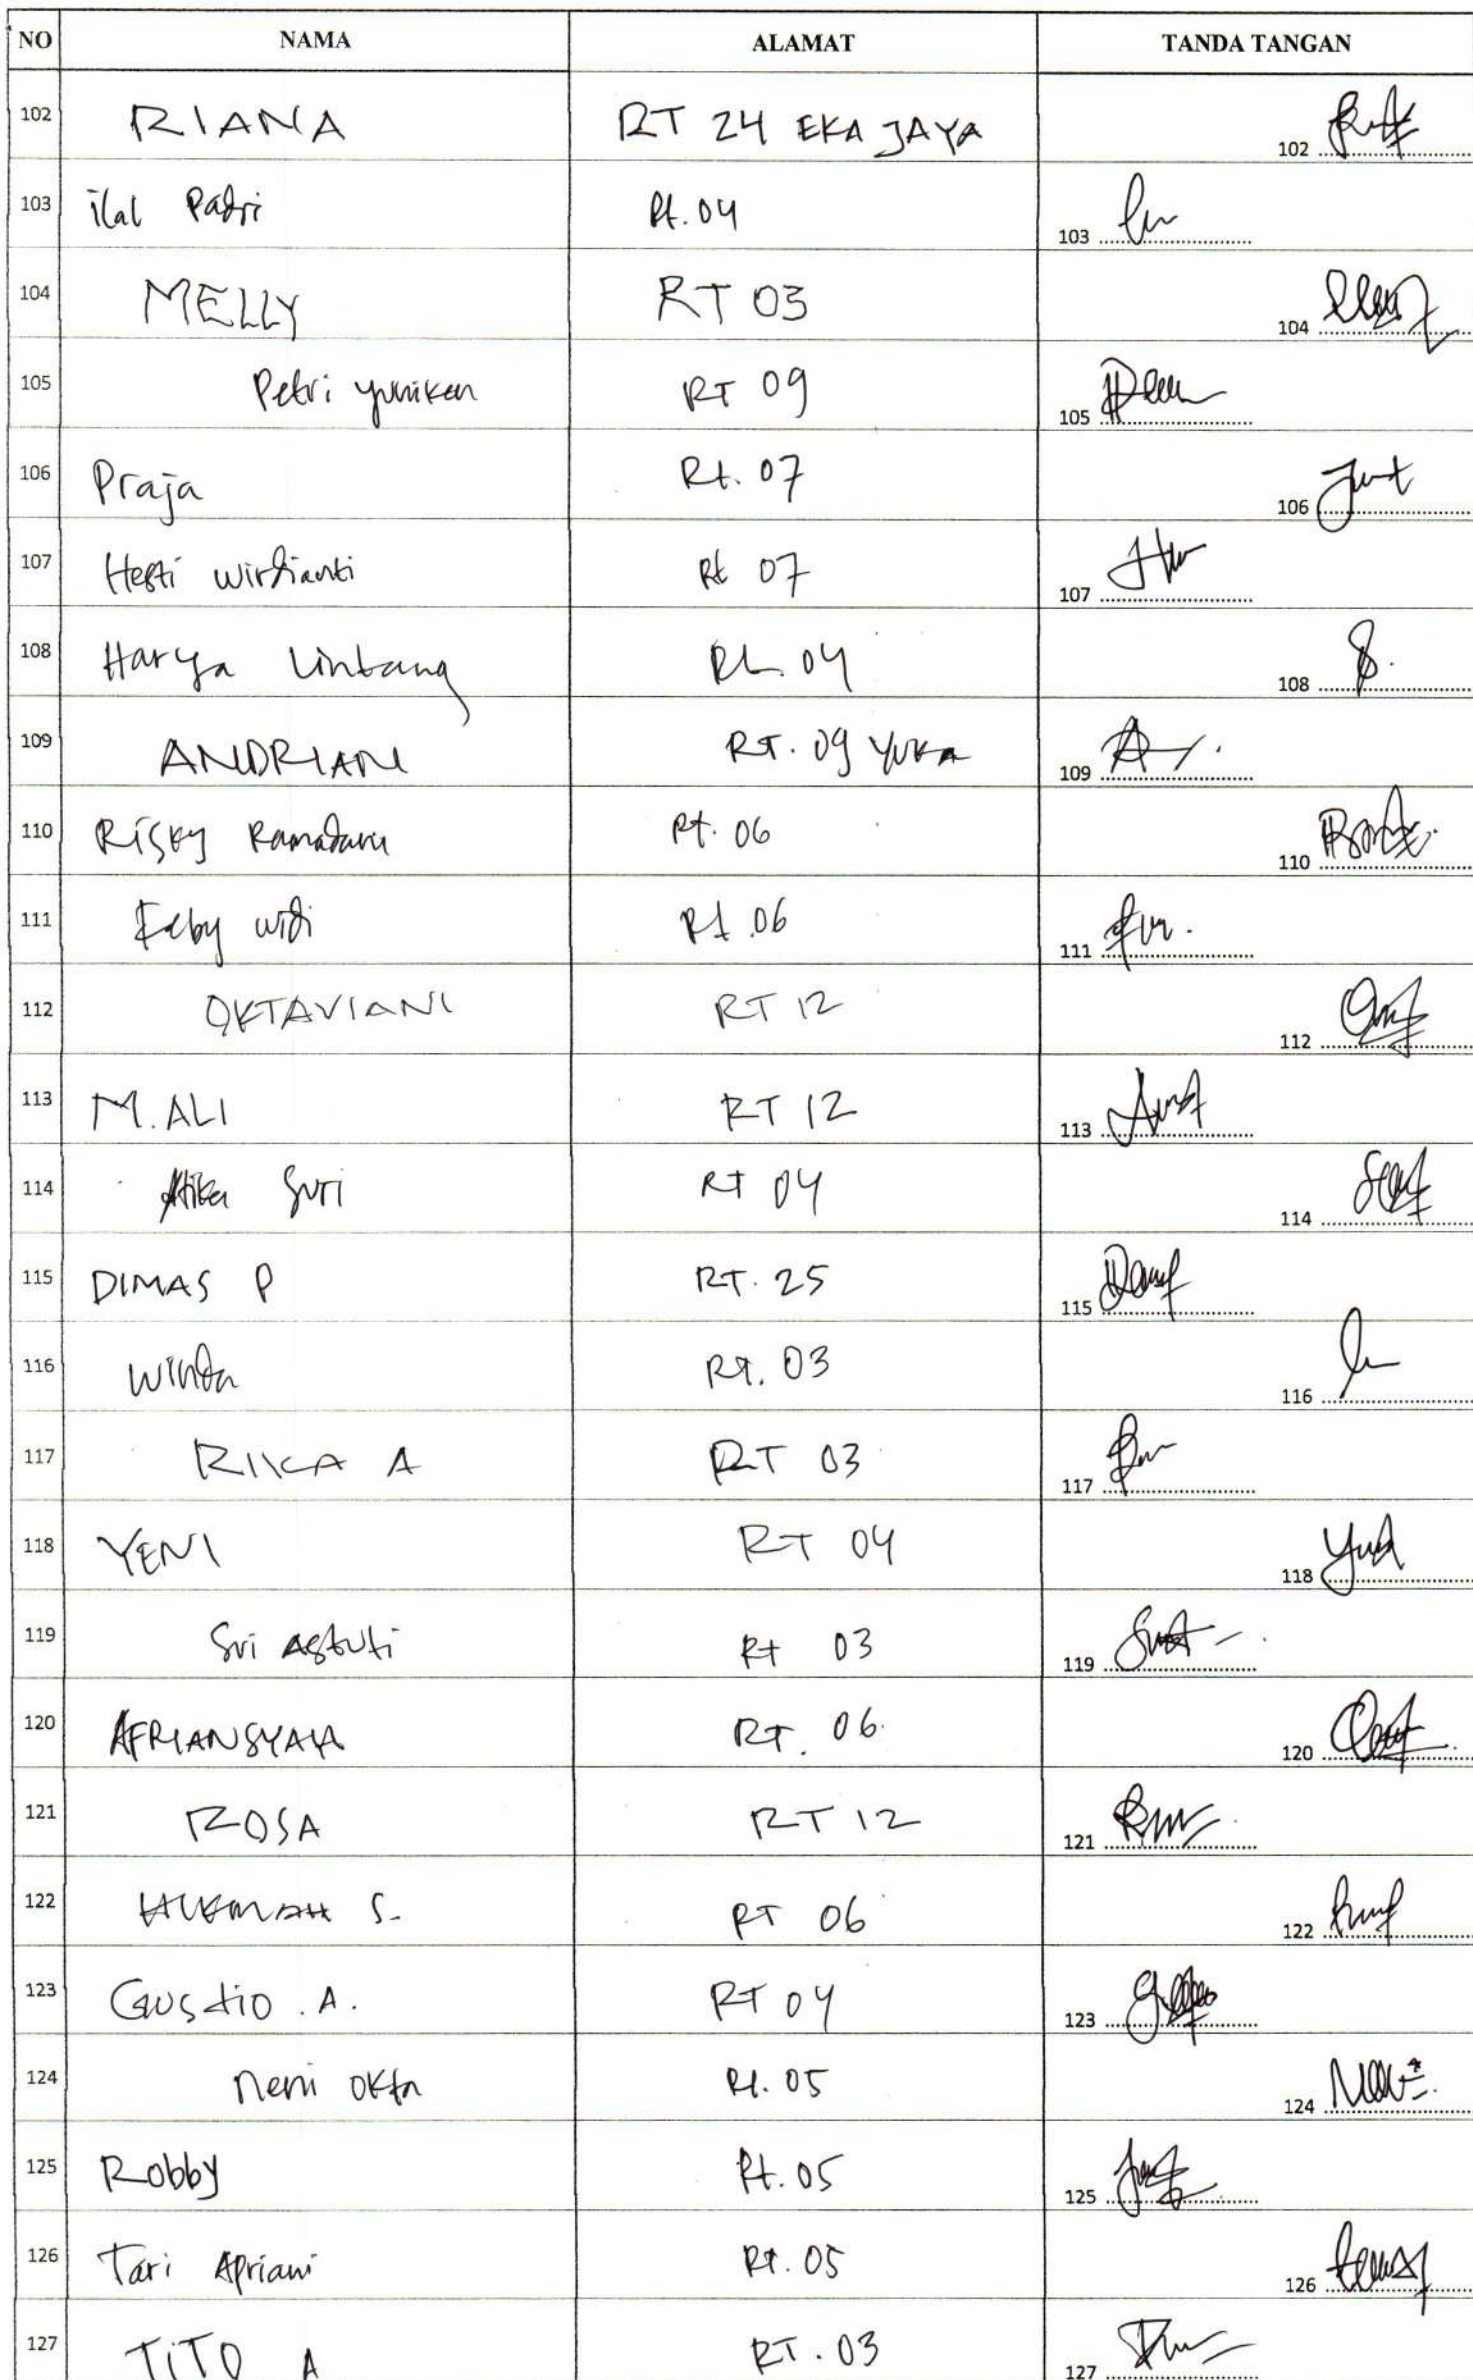 NO NAMA ALAMAT TANDA TANGAN
102 RIANA RT 24 EKA JAYA 102
103 ilal Padri Rt. 04 103
104 MELLY RT 03 104
105 Petri yuniken RT 09 105
106 Praja Rt. 07 106
107 Hesti Wirdianti Rt 07 107
108 Harya Lintang Rt. 04 108
109 ANDRIAN RT. 09 YUKA 109
110 Risky Ramadani Rt. 06 110
111 Feby widi Rt. 06 111
112 OKTAVIANI RT 12 112
113 M. ALI RT 12 113
114 Atika Suri RT 04 114
115 DIMAS P RT. 25 115
116 Winda RT. 03 116
117 RIKA A RT 03 117
118 YENI RT 04 118
119 Sri Astuti Rt 03 119
120 AFRIANSYAH RT. 06 120
121 ROSA RT 12 121
122 HUKMAH S. RT 06 122
123 Gustio . A. RT 04 123
124 neni okta Rt. 05 124
125 Robby Rt. 05 125
126 Tari Apriani Rt. 05 126
127 TITO A RT. 03 127